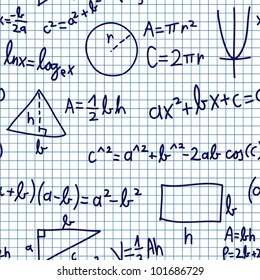 x = -b/2a
c² = a² + b²
r
A = πr²
C = 2πr
lnx = logₑx
A = 1/2 bh
h
b
ax² + bx + c =
c^² = a^² + b^² - 2ab cos(c)
a + b)(a - b) = a² - b²
b
h
a
c
V = 1/3 Ah
A = bh
P = 2b + 2
www.shutterstock.com · 101686729